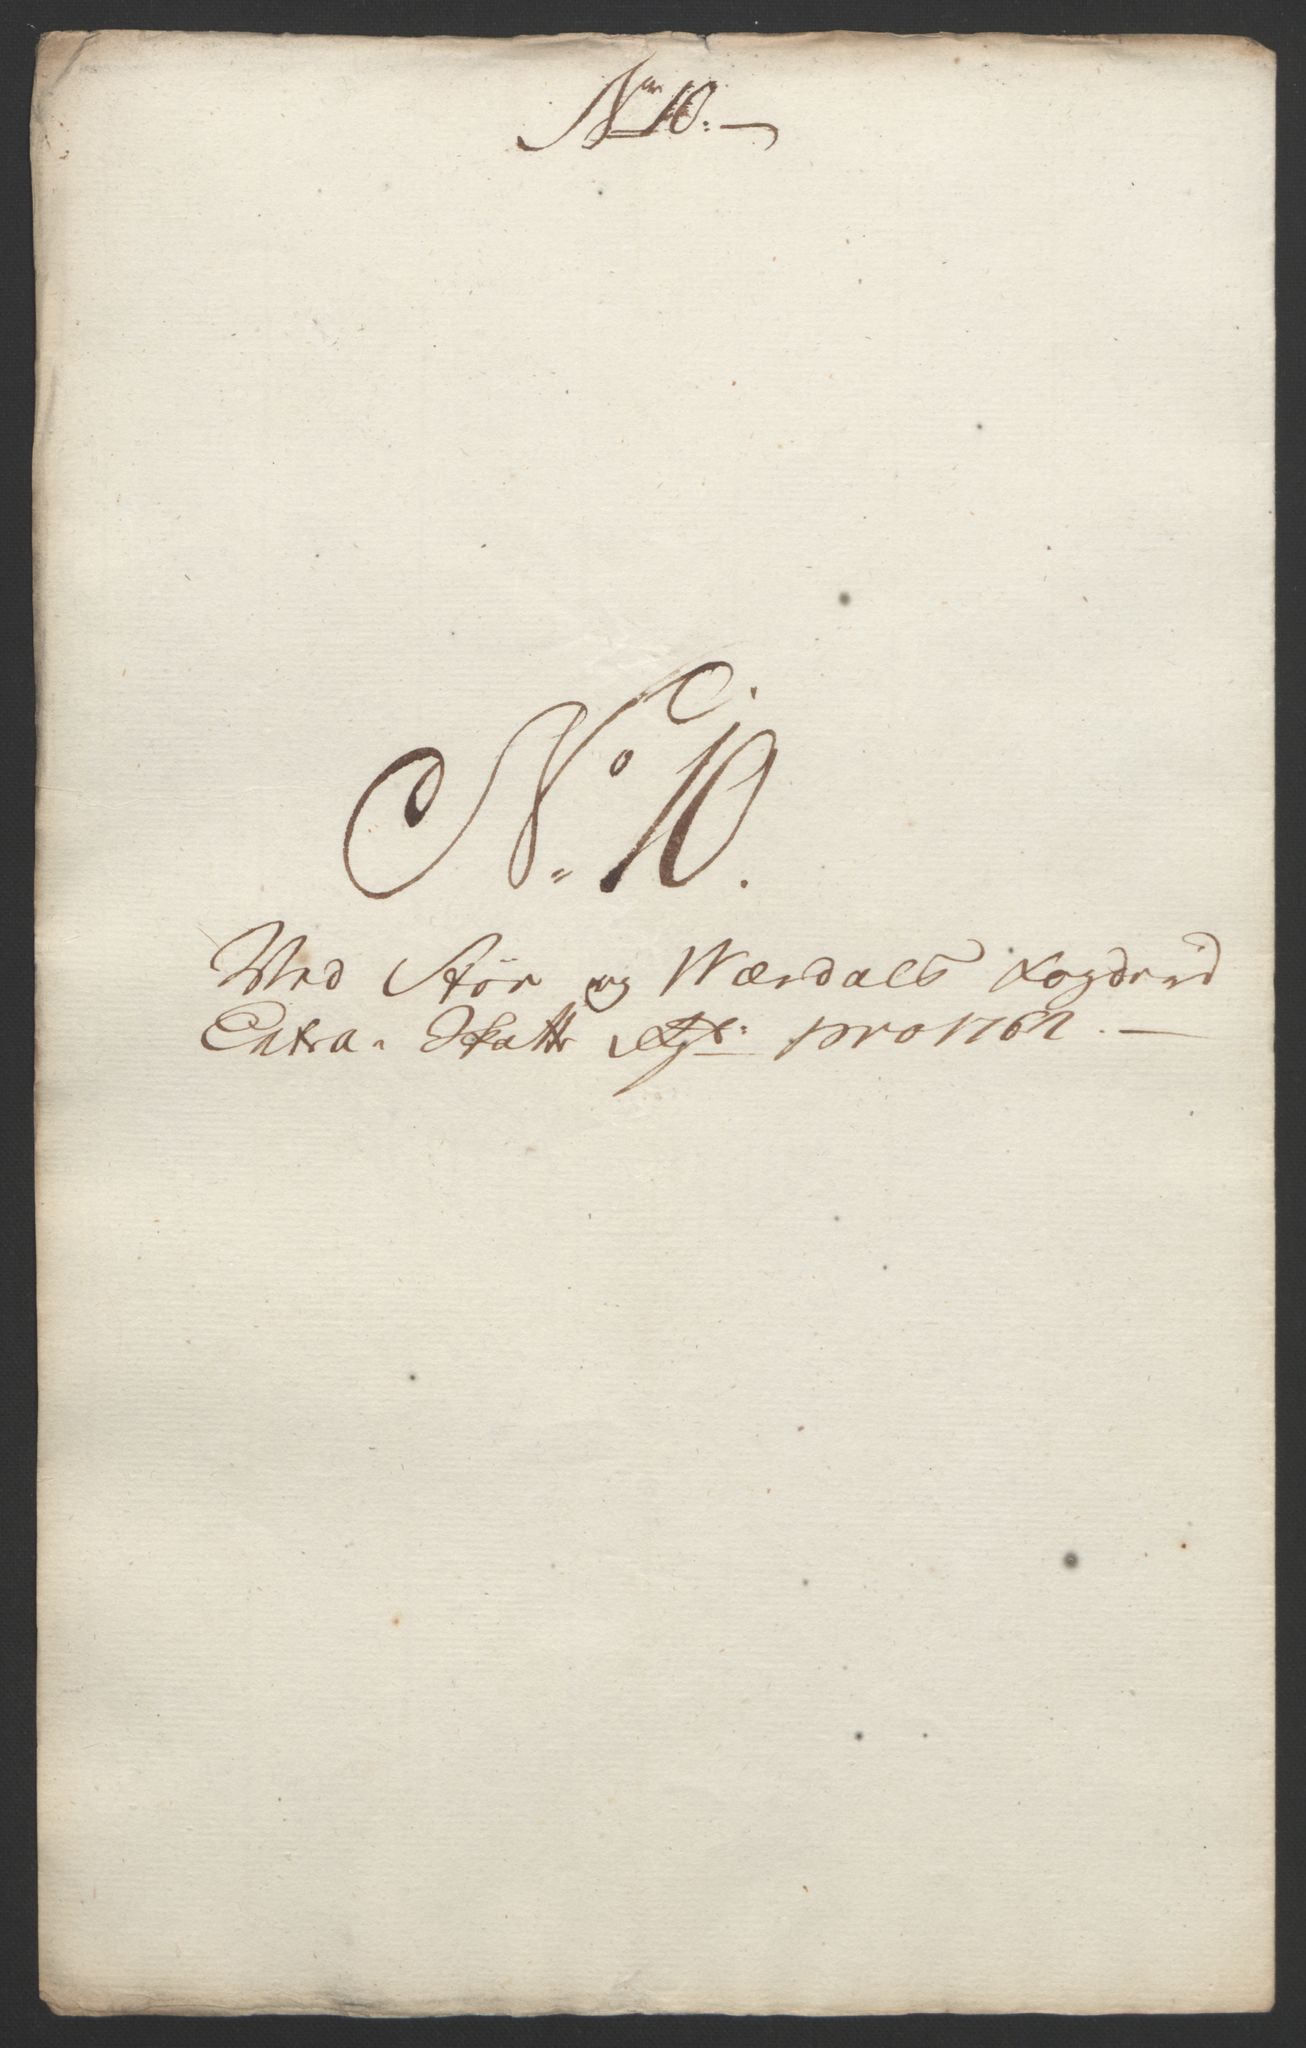 No 10.
No 10.
Ved Stör og Wærdals Fogderid
Extra Skatte pro 1762.